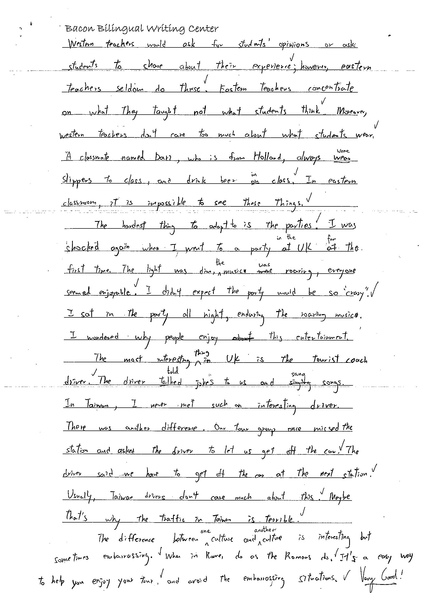 Bacon Bilingual Writing Center
Western teachers would ask for students' opinions or ask
students to share about their experience; however, eastern
teachers seldom do these. Eastern teachers concentrate
on what they taught not what students think. Moreover,
western teachers don't care too much about what students wear.
A classmate named Dan, who is from Holland, always wear wore
slippers to class, and drink beer on in class. In eastern
classroom, it is impossible to see these things.
The hardest thing to adapt to is the parties. I was
shocked again when I went to a party at in the UK at for the
first time. The light was dim, the musice was roaring, everyone
seemed enjoyable. I didn't expect the party would be so "crazy".
I sat in the party all night, enduring the roaring musice.
I wondered why people enjoy about this entertainment.
The most interesting thing in UK is the tourist coach
driver. The driver talked told jokes to us and singing sang songs.
In Taiwan, I never met such an interesting driver.
There was another difference. Our tour group once missed the
station and asked the driver to let us get off the car. The
driver said we have to get off the car at the next station.
Usually, Taiwan drivers don't care much about this. Maybe
That's why the traffic in Taiwan is terrible.
The difference between one culture and another culture is interesting but
sometimes embarrassing. When in Rome, do as the Romans do. It's a easy way
to help you enjoy your tour and avoid the embarrassing situations. Very Good!